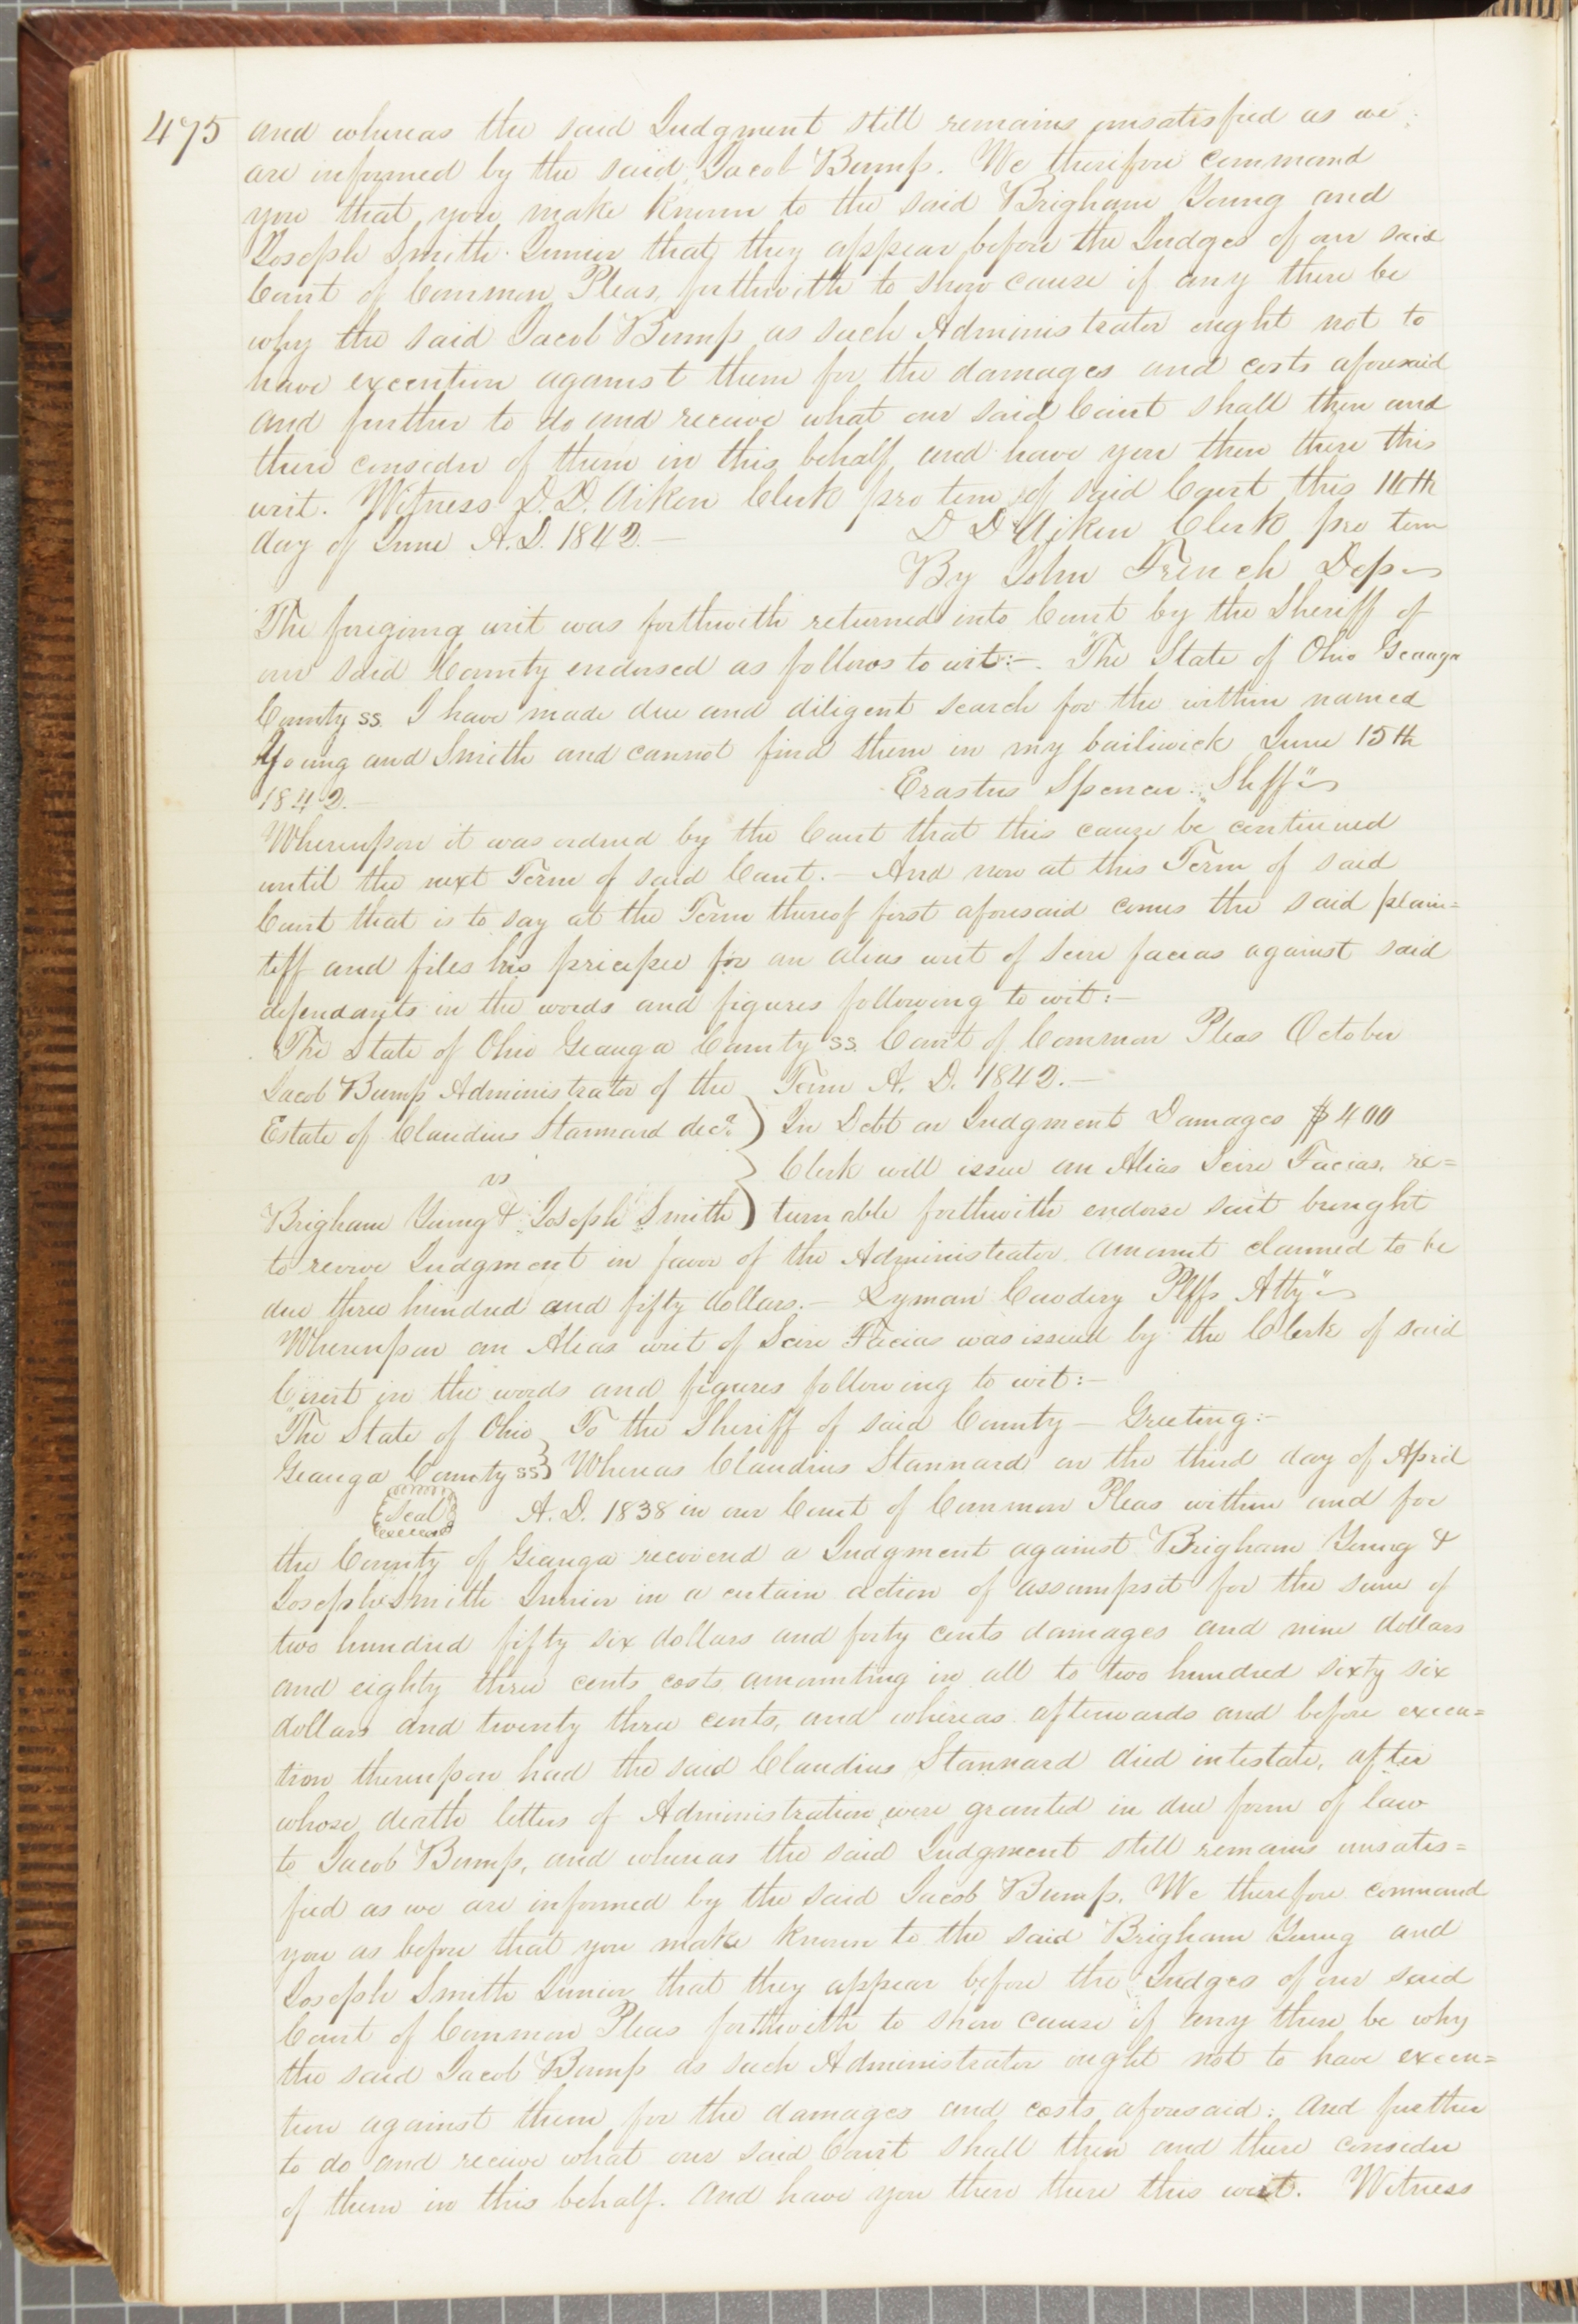 475
and whereas the said Judgment still remains unsatisfied as we
are informed by the said Jacob Bump. We therefore command
you that you make known to the said Brigham Young and
Joseph Smith Junior that they appear before the Judges of our said
Court of Common Pleas, forthwith to show cause if any there be
why the said Jacob Bump as such Administrator ought not to
have execution against them for the damages and costs aforesaid
and further to do and receive what our said Court shall then and
there consider of them in this behalf, and have you then there this
writ. Witness D. D. Aiken Clerk pro tem, of said Court this 14th
day of June A.D. 1842.— D D Aiken Clerk pro tem
By John French Dep
The foregoing writ was forthwith returned into Court by the Sheriff of
our said County endorsed as follows to wit:— "The State of Ohio Geauga
County ss I have made due and diligent search for the within named
Young and Smith and cannot find them in my bailiwick June 15th
1842.— Erastus Spencer Shff"
Whereupon it was ordered by the Court that this cause be continued
until the next Term of said Court.— And now at this Term of said
Court that is to say at the Term thereof first aforesaid comes the said plain=
tiff and files his precipe for an alias writ of scire facias against said
defendants in the words and figures following to wit:—
"The State of Ohio Geauga County ss. Court of Common Pleas October
Jacob Bump Administrator of the Term A. D. 1842.—
Estate of Claudius Stannard decd. } In Debt on Judgment Damages $400
vs } Clerk will issue an Alias Scire Facias, re=
Brigham Young & Joseph Smith } turnable forthwith endorse suit brought
to revive Judgment in favor of the Administrator. Amount claimed to be
due three hundred and fifty dollars.— Lyman Cowdery Plffs Atty"
Whereupon an Alias writ of Scire Facias was issued by the Clerk of said
Court in the words and figures following to wit:—
"The State of Ohio } To the Sheriff of said County — Greeting:—
Geauga County ss } Whereas Claudius Stannard on the third day of April
Seal A. D. 1838 in our Court of Common Pleas within and for
the County of Geauga recovered a Judgment against Brigham Young &
Joseph Smith Junior in a certain action of assumpsit for the sum of
two hundred fifty six dollars and forty cents damages and nine dollars
and eighty three cents costs amounting in all to two hundred sixty six
dollars and twenty three cents, and whereas afterwards and before execu=
tion thereupon had the said Claudius Stannard died intestate, after
whose death letters of Administration were granted in due form of law
to Jacob Bump, and whereas the said Judgment still remains unsatis=
fied as we are informed by the said Jacob Bump. We therefore command
you as before that you make known to the said Brigham Young and
Joseph Smith Junior that they appear before the Judges of our said
Court of Common Pleas forthwith to show cause if any there be why
the said Jacob Bump as such Administrator ought not to have execu=
tion against them for the damages and costs aforesaid: And further
to do and receive what our said Court shall then and there consider
of them in this behalf. And have you then there this writ. Witness